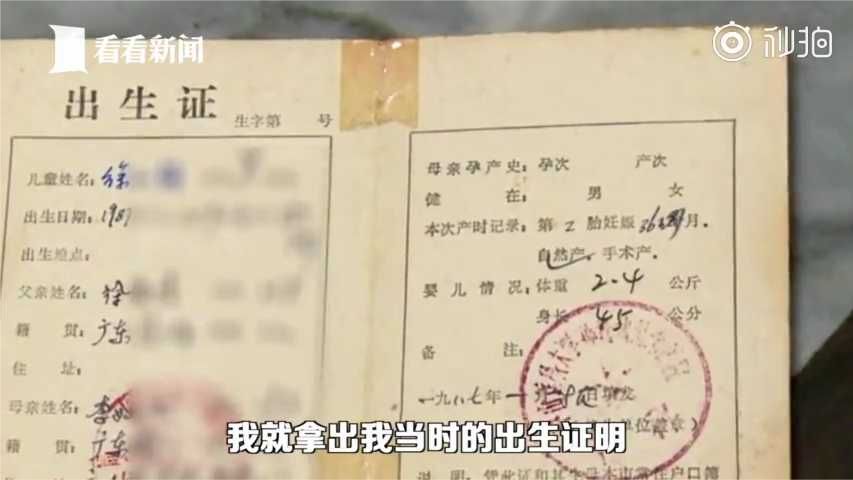 看看新闻
秒拍
出生证
生字第 号
儿童姓名：徐
出生日期：1987
出生地点：
父亲姓名：徐
籍 贯：广东
住 址：
母亲姓名：李
籍 贯：广东
母亲孕产史：孕次 产次
健 在： 男 女
本次产时记录：第 2 胎妊娠 36 月．
自然产，手术产．
婴儿情况：体重 2.4 公斤
身长 45 公分
备 注：
一九八七年一 日填发
单位盖章）
说 明：凭此证和其 本市常住户口簿
我就拿出我当时的出生证明